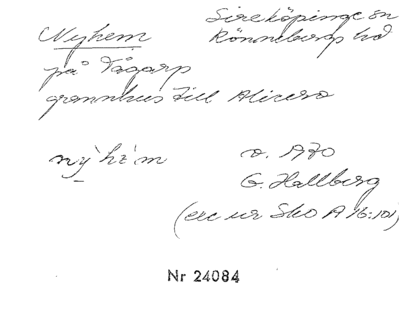 Nyhem
Sireköpinge sn
Rönnebergs hd
på Vågarp
grannhus till Alicero
ny`he`m
o. 1970
G. Hallberg
(exc ur Sko A 16:101)
Nr 24084